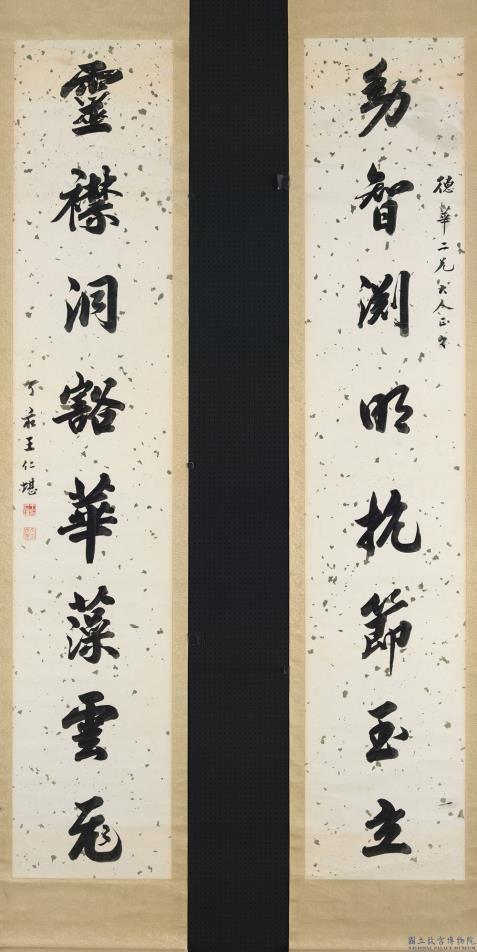 動智淵明抗節玉立
德華二兄大人正之
靈襟洞豁華藻雲飛
可莊王仁堪
國立故宮博物院
NATIONAL PALACE MUSEUM